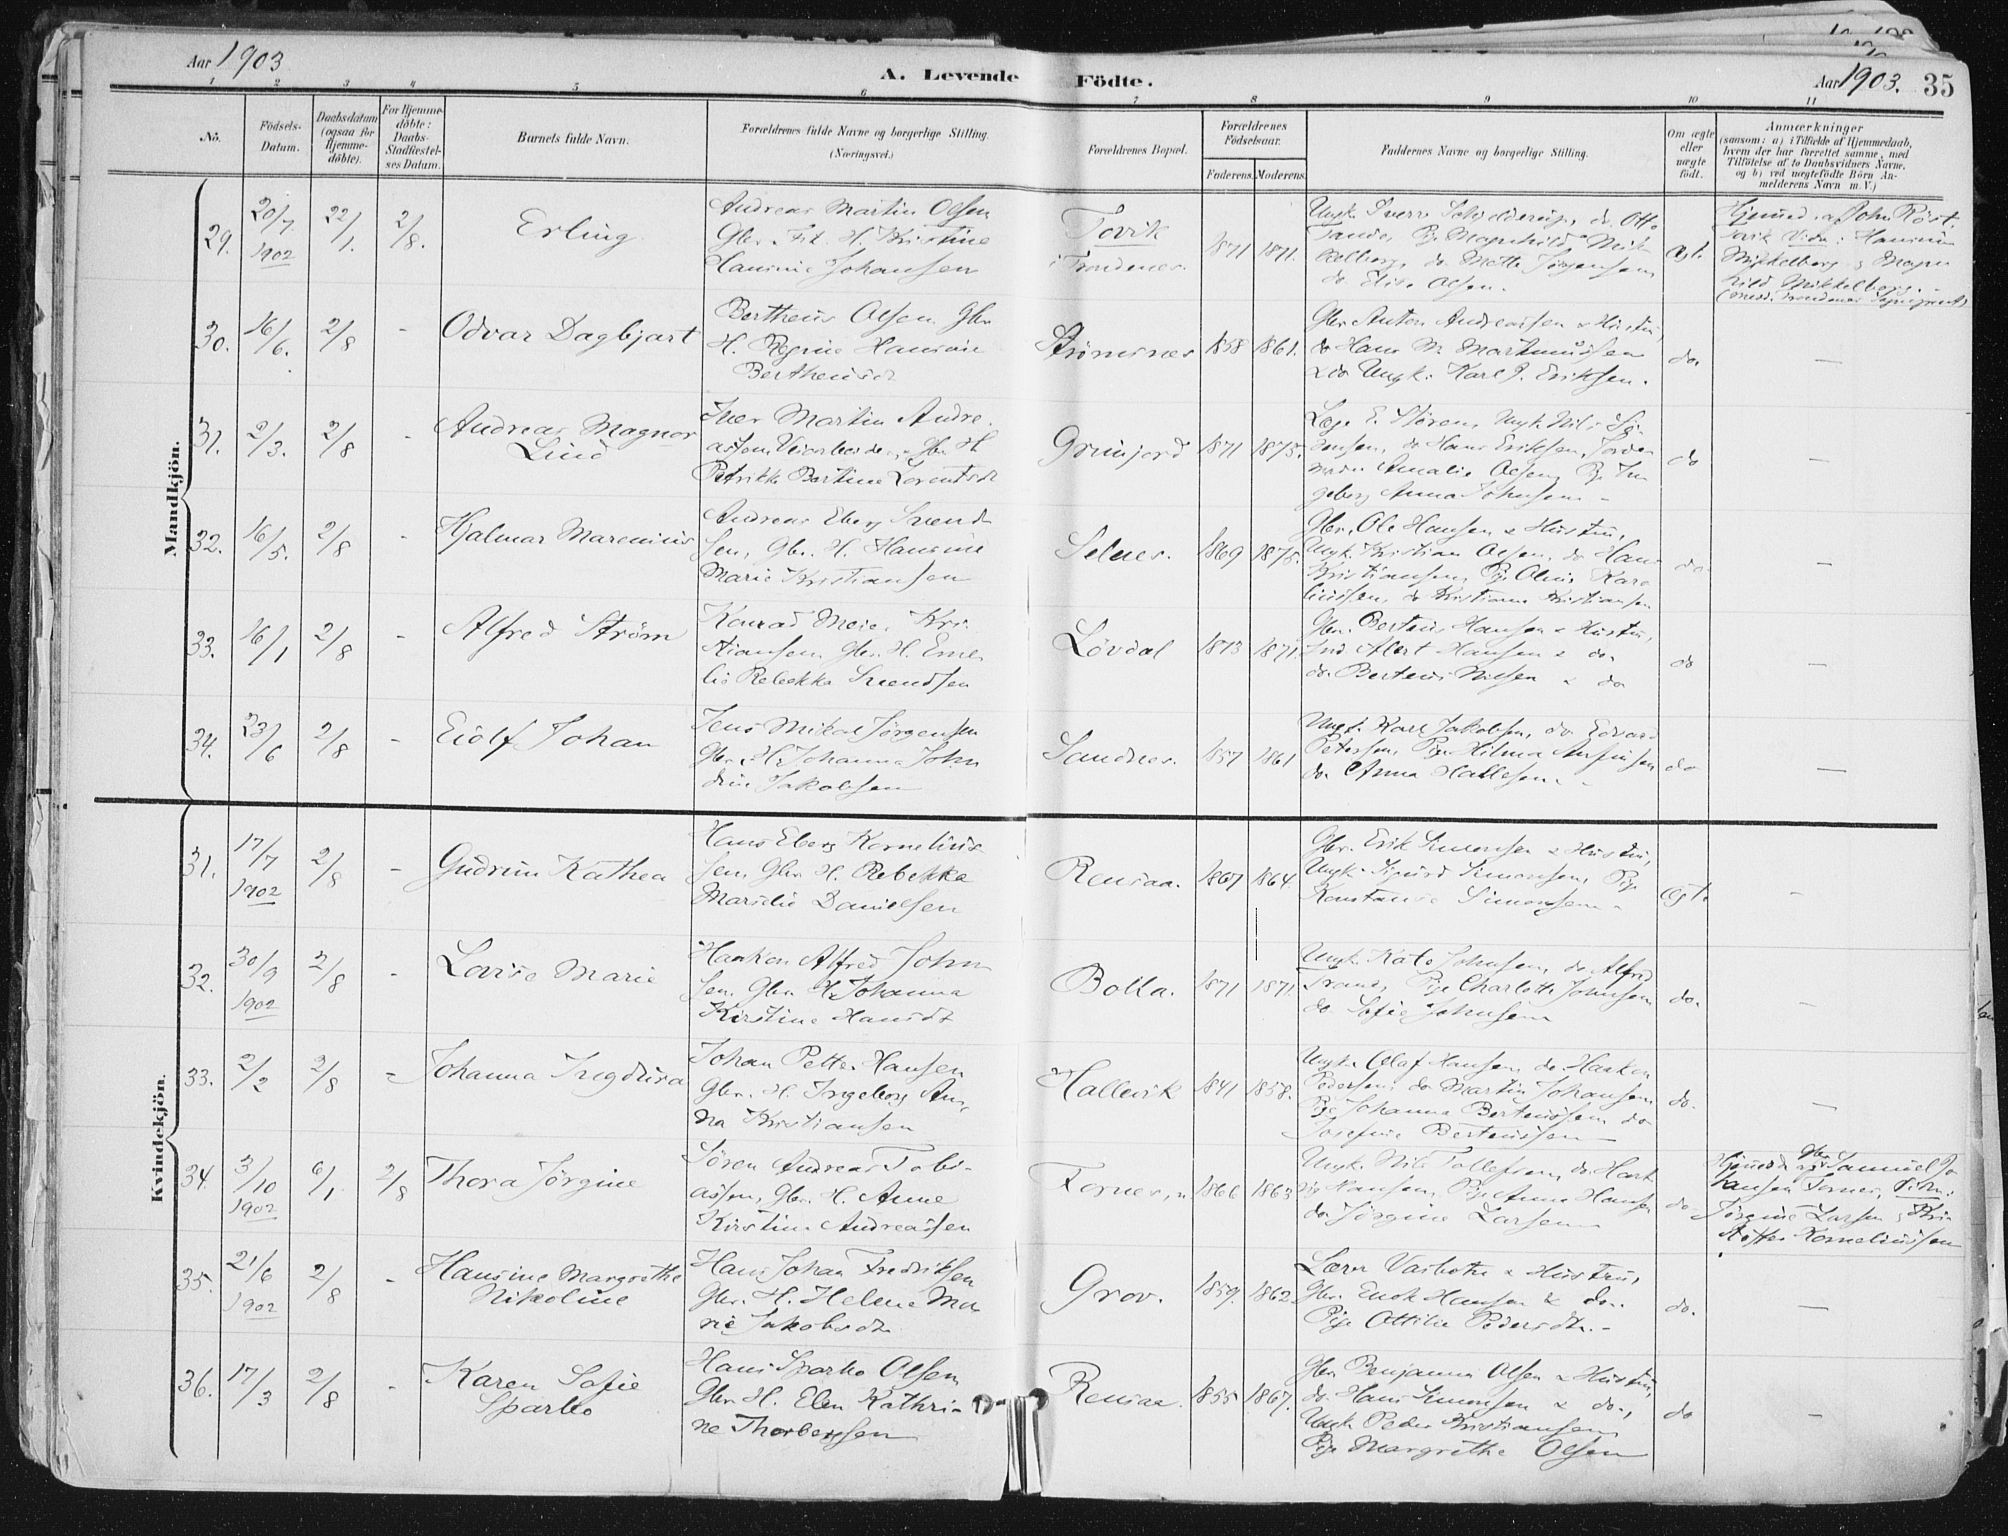 Aar 1903
A. Levende Födte.
Aar 1903. 35
1 2 3 4 5 6 7 8 9 10 11
No.
Födsels-Datum.
Daabsdatum (ogsaa for Hjemme-döbte).
For Hjemme-döbte: Daabs-Stadfæstelses Datum.
Barnets fulde Navn.
Forældrenes fulde Navne og borgerlige Stilling.
(Næringsvei.)
Forældrenes Bopæl.
Forældrenes Födselsaar.
Faderens. Moderens.
Faddernes Navne og borgerlige Stilling.
Om ægte eller uægte födt.
Anmærkninger
(saasom: a) i Tilfælde af Hjemmedaab,
hvem der har forrettet samme, med
Tilföielse af to Daabsvidners Navne,
og b) ved uægtefödte Börn An-
melderens Navn m. V.)
Mandkjön.
29. 20/7 1902 22/1. 2/8. Erling
Andreas Martin Olsen
Gbr. Fisk. H. Kristine
Hansine Johansen
Tovik
i Trondenes.
1871 1871.
do Elise Olsen.
Ægt.
30. 16/6. 2/8 - Odvar Dagbjart
Bertheus Olsen Gbr
H. Regine Hansine
Bertheusdt
Strømsnes 1858 1861.
Gbr Anton Andreassen & Hustru,
do Hans M. Martinussen
& do Ungk. Karl J. Eriksen.
do —
31. 2/3. 2/8 - Andreas Magnor
Lind
Iver Martin Andre-
assen
Petrikke Bertine Lorentsdt
Grunjord 1871 1875.
Hans Eriksen,
Amalie Olsen, Pige In-
geborg Anna Johnsen -
do —
32. 16/5. 2/8 - Hjalmar Marenius
Andreas Eberg Svend-
sen, Gbr. H. Hansine
Marie Kristiansen
Selnes. 1869 1875.
Gbr. Ole Hansen & Hustru,
Ungk. Kristian Olsen, do Hans
Kristiansen, Pige Oline Karo-
liussen, do Kristiane Kristiansen
do —
33. 16/1 2/8 - Alfred Strøm
Konrad Meier Kri-
stiansen Gbr. H. Eme-
lie Rebekka Svendsen
Løvdal 1873 1871
Gbr. Berteus Hansen & Hustru,
Albert Hansen & do
do Berteus Nilsen & do
do —
34. 23/6 2/8 - Eiolf Johan
Jens Mikal Jørgensen
Gbr. H. Johanna John-
dine Jakobsen
Sandnes. 1857 1861
Ungk. Karl Jakobsen, do Edvard
Petersen, Pige Hilma
do Anna Hallesen.
do —
Kvindekjön.
31. 17/7 1902 2/8 - Gudrun Kathea
Hans Eberg Kornelius-
sen Gbr. H. Rebekka
Marselie Danielsen
Rensaa. 1867 1864.
Gbr. Erik Simonsen & Hustru,
Ungk. Sigurd Simonsen, Pige
Konstanse Simonsen.
Ægt. -
32. 30/9 1902 2/8 - Lovise Marie
Haakon Alfred John-
sen Gbr. H. Johanna
Kirstine Hansdt
Bolla. 1871 1871.
Ungk. Kato Johnsen, do Alfred
Trane, Pige Charlotte Johnsen
do Sofie Johnsen
do. —
33. 2/2 2/8 - Johanna Ingdura
Johan Petter Hansen
Gbr. H. Ingeborg An-
na Kristiansen
Hallevik 1841 1858.
Ungk. Olaf Hansen do Haakon
Pedersen, do Martin Johansen
Pige Johanna Berteussen do
Josefine Berteussen
do. —
34. 3/10 1902 6/1 2/8 Thora Jørgine
Søren Andreas Tobi-
assen, Gbr. H. Anne
Kirstine Andreassen
Fornes. 1866 1863
Ungk. Nils Tollefsen, do Hart-
vig Hansen, Pige Anna Hansen
do Jørgine Larsen
do.
Hjemmed. af Gbr. Samuel Jo-
hansen Fornes, Vidn:
Jørgine Larsen & Kri-
stoffer Korneliussen
35. 21/6 1902 2/8 - Hansine Margrethe
Nikoline
Hans Johan Fredriksen
Gbr. H. Helene Ma-
rie Jakobsdt
Grov. 1859. 1862
Lærer & Hustru,
Gbr. Enok Hansen & do.
Pige Ottilie Pedersdt.
do. —
36. 17/3 2/8 - Karen Sofie
Sparbo
Hans Sparbo Olsen
Gbr. H. Elen Kathri-
ne Thorbergsen
Rensaa. 1855 1867.
Gbr Benjamin Olsen & Hustru,
do Hans Simonsen & do.,
Ungk Peder Kristiansen
Pige Margrethe Olsen
do —